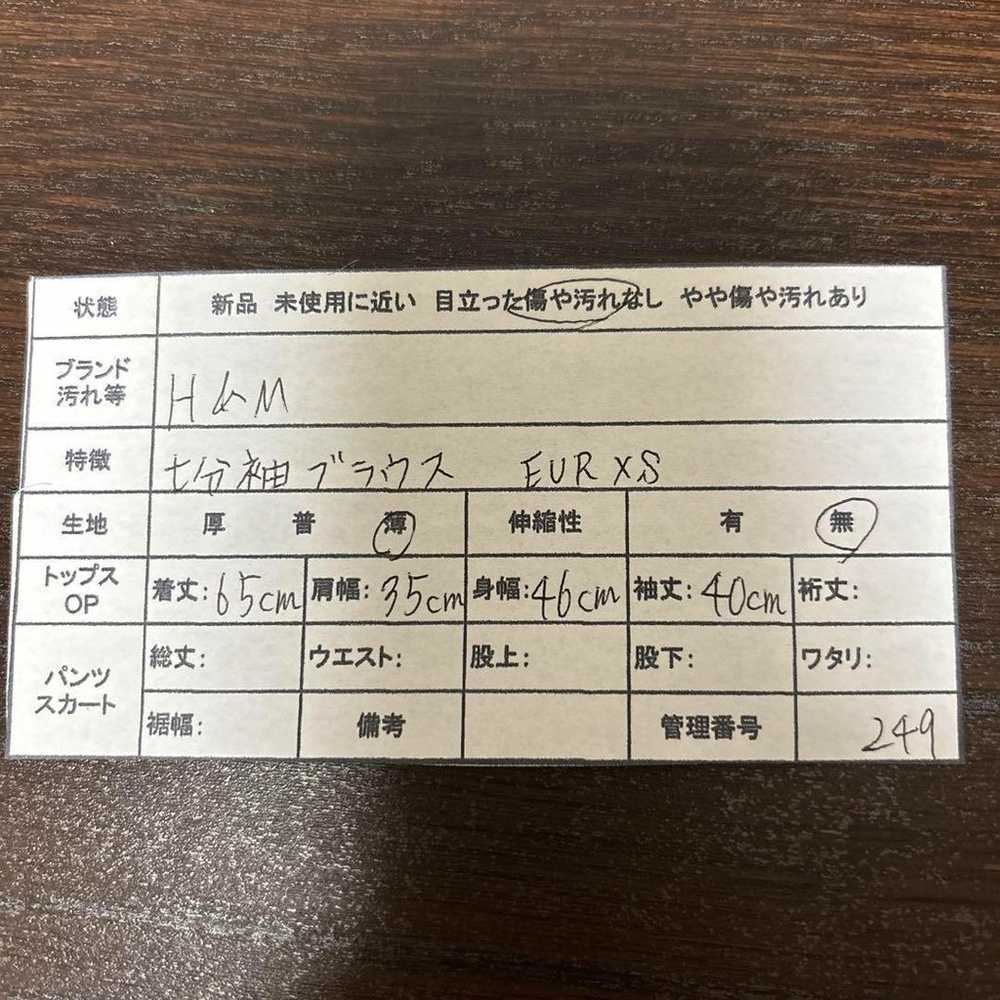 状態 新品 未使用に近い 目立った傷や汚れなし やや傷や汚れあり
ブランド
汚れ等 H&M
特徴 七分袖ブラウス EUR XS
生地 厚 普 薄 伸縮性 有 無
トップス
OP 着丈:65cm 肩幅:35cm 身幅:46cm 袖丈:40cm 裄丈:
パンツ
スカート 総丈: ウエスト: 股上: 股下: ワタリ:
裾幅: 備考 管理番号 249